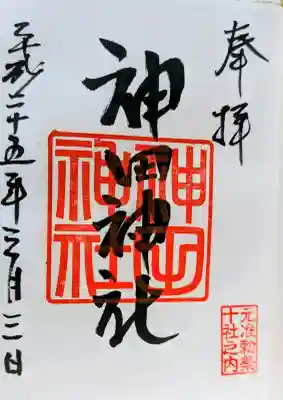 奉拝
神田神社
神田
神社
元准勅祭
十社之内
平成二十五年三月三日